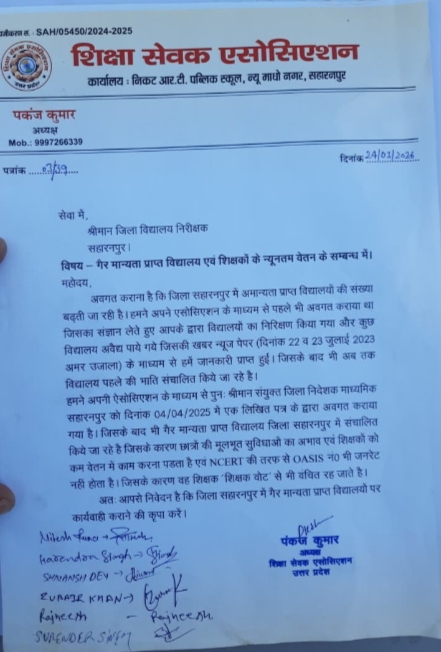 पंजीकरण सं. - SAH/05450/2024-2025
शिक्षा सेवक एसोसिएशन
कार्यालय : निकट आर.टी. पब्लिक स्कूल, न्यू माधो नगर, सहारनपुर
पकंज कुमार
अध्यक्ष
Mob.: 9997266339
पत्रांक
दिनांक 24/01/2026
सेवा में,
श्रीमान जिला विद्यालय निरीक्षक
सहारनपुर।
विषय – गैर मान्यता प्राप्त विद्यालय एवं शिक्षकों के न्यूनतम वेतन के सम्बन्ध में।
महोदय,
अवगत कराना है कि जिला सहारनपुर में अमान्यता प्राप्त विद्यालयों की संख्या
बढ़ती जा रही है। हमने अपने एसोशिएसन के माध्यम से पहले भी अवगत कराया था
जिसका संज्ञान लेते हुए आपके द्वारा विद्यालयों का निरिक्षण किया गया और कुछ
विद्यालय अवैद्य पाये गये जिसकी खबर न्यूज पेपर (दिनांक 22 व 23 जुलाई 2023
अमर उजाला) के माध्यम से हमें जानकारी प्राप्त हुई। जिसके बाद भी अब तक
विद्यालय पहले की भाति संचालित किये जा रहे है।
हमने अपनी ऐसोसिएशन के माध्यम से पुनः श्रीमान संयुक्त जिला निदेशक माध्यमिक
सहारनपुर को दिनांक 04/04/2025 में एक लिखित पत्र के द्वारा अवगत कराया
गया है। जिसके बाद भी गैर मान्यता प्राप्त विद्यालय जिला सहारनपुर में संचालित
किये जा रहे है जिसके कारण छात्रों की मूलभूत सुविधाओं का अभाव एवं शिक्षकों को
कम वेतन में काम करना पडता है एवं NCERT की तरफ से OASIS नं0 भी जनरेट
नही होता है। जिसके कारण वह शिक्षक 'शिक्षक वोट' से भी वंचित रह जाते है।
अतः आपसे निवेदन है कि जिला सहारनपुर में गैर मान्यता प्राप्त विद्यालयों पर
कार्यवाही कराने की कृपा करें।
पंकज कुमार
अध्यक्ष
शिक्षा सेवक एसोसिएशन
उत्तर प्रदेश
Harendra Singh
SHIVANSH DEV
ZUBAIR KHAN
Rajneesh – Rajneesh
SURENDER SINGH